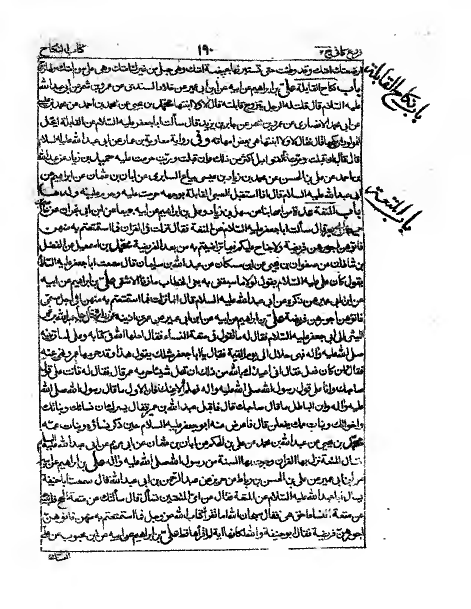 كتاب النكاح
١٩٠
فروع كافى ج٢
باب نكاح القابلة
باب المتعة
باب نكاح القابلة علي بن ابراهيم عن ابيه عن ابن ابي عمير عن خلاد السندي عن عمرو بن شمر عن ابي عبد الله
عليه السلام قال قلت له الرجل يتزوج قابلته قال لا ولا ابنتها محمد بن يحيى عن محمد بن احمد عن
عن ابي محمد الانصاري عن عمرو بن شمر عن جابر بن يزيد قال سألت ابا جعفر عليه السلام عن القابلة ايحل
للمولود ان ينكحها فقال لا ولا ابنتها هي بعض امهاته وفي رواية معاوية بن عمار عن ابي عبد الله عليه السلام
قال قال ان قبلت ومرت فالقوابل اكثر من ذلك وان قبلت وربت حرمت عليه حميد بن زياد عن عبد الله
بن احمد عن علي بن الحسن عن محمد بن زياد بن عيسى بياع السابري عن ابان بن عثمان عن ابراهيم عن
ابي عبد الله عليه السلام قال اذا استقبل الصبي القابلة بوجهه حرمت عليه وحرم عليه ولدها
باب المتعة عدة من اصحابنا عن سهل بن زياد وعلي بن ابراهيم عن ابيه جميعا عن ابن ابي نجران عن
عن ابي بصير قال سألت ابا جعفر عليه السلام عن المتعة فقال نزلت في القران فما استمتعتم به منهن
فاتوهن اجورهن فريضة ولا جناح عليكم فيما تراضيتم به من بعد الفريضة محمد بن اسمعيل عن الفضل
بن شاذان عن صفوان بن يحيى عن ابن مسكان عن عبد الله بن سليمان قال سمعت ابا جعفر عليه السلام
يقول كان علي عليه السلام يقول لولا ما سبقني به بني الخطاب ما زنى الا شقي علي بن ابراهيم عن ابيه
عن ابن ابي عمير عمن ذكره عن ابي عبد الله عليه السلام قال انما نزلت فما استمتعتم به منهن الى اجل مسمى
فاتوهن اجورهن فريضة علي بن ابراهيم عن ابيه عن ابن ابي عمير عن عمر بن اذينة عن زرارة قال جاء عبد الله بن عمير
الليثي الى ابي جعفر عليه السلام فقال له ما تقول في متعة النساء فقال احلها الله في كتابه وعلى لسان نبيه
صلى الله عليه واله فهي حلال الى يوم القيمة فقال يا ابا جعفر مثلك يقول هذا وقد حرمها عمر ونهى عنه
فقال وان كان فعل فقال اني اعيذك بالله من ذلك ان تحل شيئا حرمه عمر قال فقال له فانت على قول
صاحبك وانا على قول رسول الله صلى الله عليه واله فهلم الاعنك ان القول ما قال رسول الله صلى الله
عليه واله وان الباطل ما قال صاحبك قال فاقبل عبد الله بن عمير فقال يسرك ان نساءك وبناتك
واخواتك وبنات عمك يفعلن قال فاعرض عنه ابو جعفر عليه السلام حين ذكر نساءه وبنات عمه
محمد بن يحيى عن عبد الله بن محمد عن علي بن الحكم عن ابان بن عثمان عن ابي مريم عن ابي عبد الله عليه السلام
قال المتعة نزل بها القران وجرت بها السنة من رسول الله صلى الله عليه واله علي بن ابراهيم عن ابيه
عن ابن ابي عمير عن علي بن الحسن بن رباط عن حريز عن عبد الرحمن بن ابي عبد الله قال سمعت ابا حنيفة
يسأل ابا عبد الله عليه السلام عن المتعة فقال عن اي المتعتين تسأل قال سألتك عن متعة الحج فانبئني
عن متعة النساء احق هي فقال سبحان الله اما تقرأ كتاب الله عز وجل فما استمتعتم به منهن فاتوهن
اجورهن فريضة فقال ابو حنيفة والله لكانها اية لم اقرأها قط علي بن ابراهيم عن ابيه عن ابن محبوب عن علي